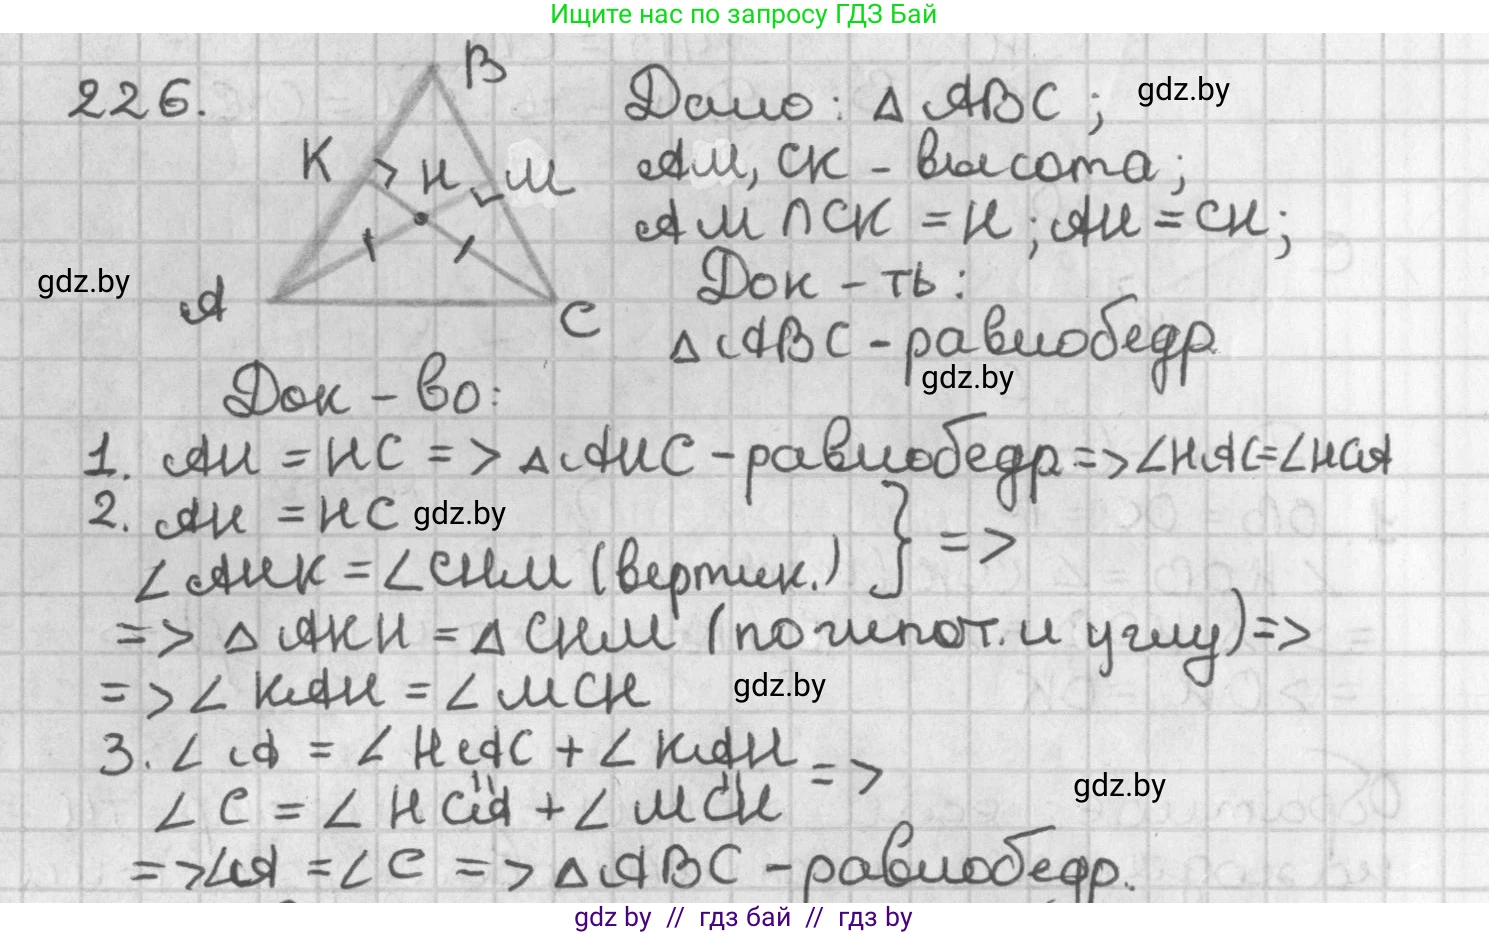 Ищите нас по запросу ГДЗ Бай
226.
B
K
H
M
A
C
Дано: △ ABC;
gdz.by
AM, CK - высота;
AM ∩ CK = H; AH = CH;
gdz.by
Док - ть:
△ ABC - равнобедр.
gdz.by
Док - во:
1. AH = HC => △ AHC - равнобедр => ∠HAC = ∠HCA
2. AH = HC
gdz.by
∠ AHK = ∠ CHM (вертик.) } =>
=> △ AKH = △ CHM (по гипот. и углу) =>
=> ∠ KAH = ∠ MCH
gdz.by
3. ∠ A = ∠ HAC + ∠ KAH
∠ C = ∠ HCA + ∠ MCH =>
gdz.by
=> ∠A = ∠ C => △ ABC - равнобедр.
gdz by // гдз бай // гдз by